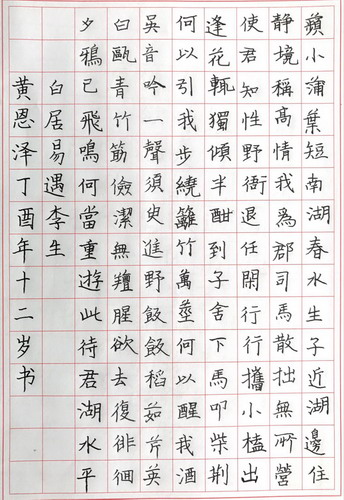 蘋小蒲葉短南湖春水生子近湖邊住
靜境稱高情我爲郡司馬散拙無所營
使君知性野衙退任閑行行攜小榼出
逢花輒獨傾半酣到子舍下馬叩柴荆
何以引我步繞籬竹萬莖何以醒我酒
吳音吟一聲須臾進野飯飯稻茹芹英
白甌青竹筯儉潔無羶腥欲去復徘徊
夕鴉已飛鳴何當重遊此待君湖水平
白居易遇李生
黄恩泽丁酉年十二岁书